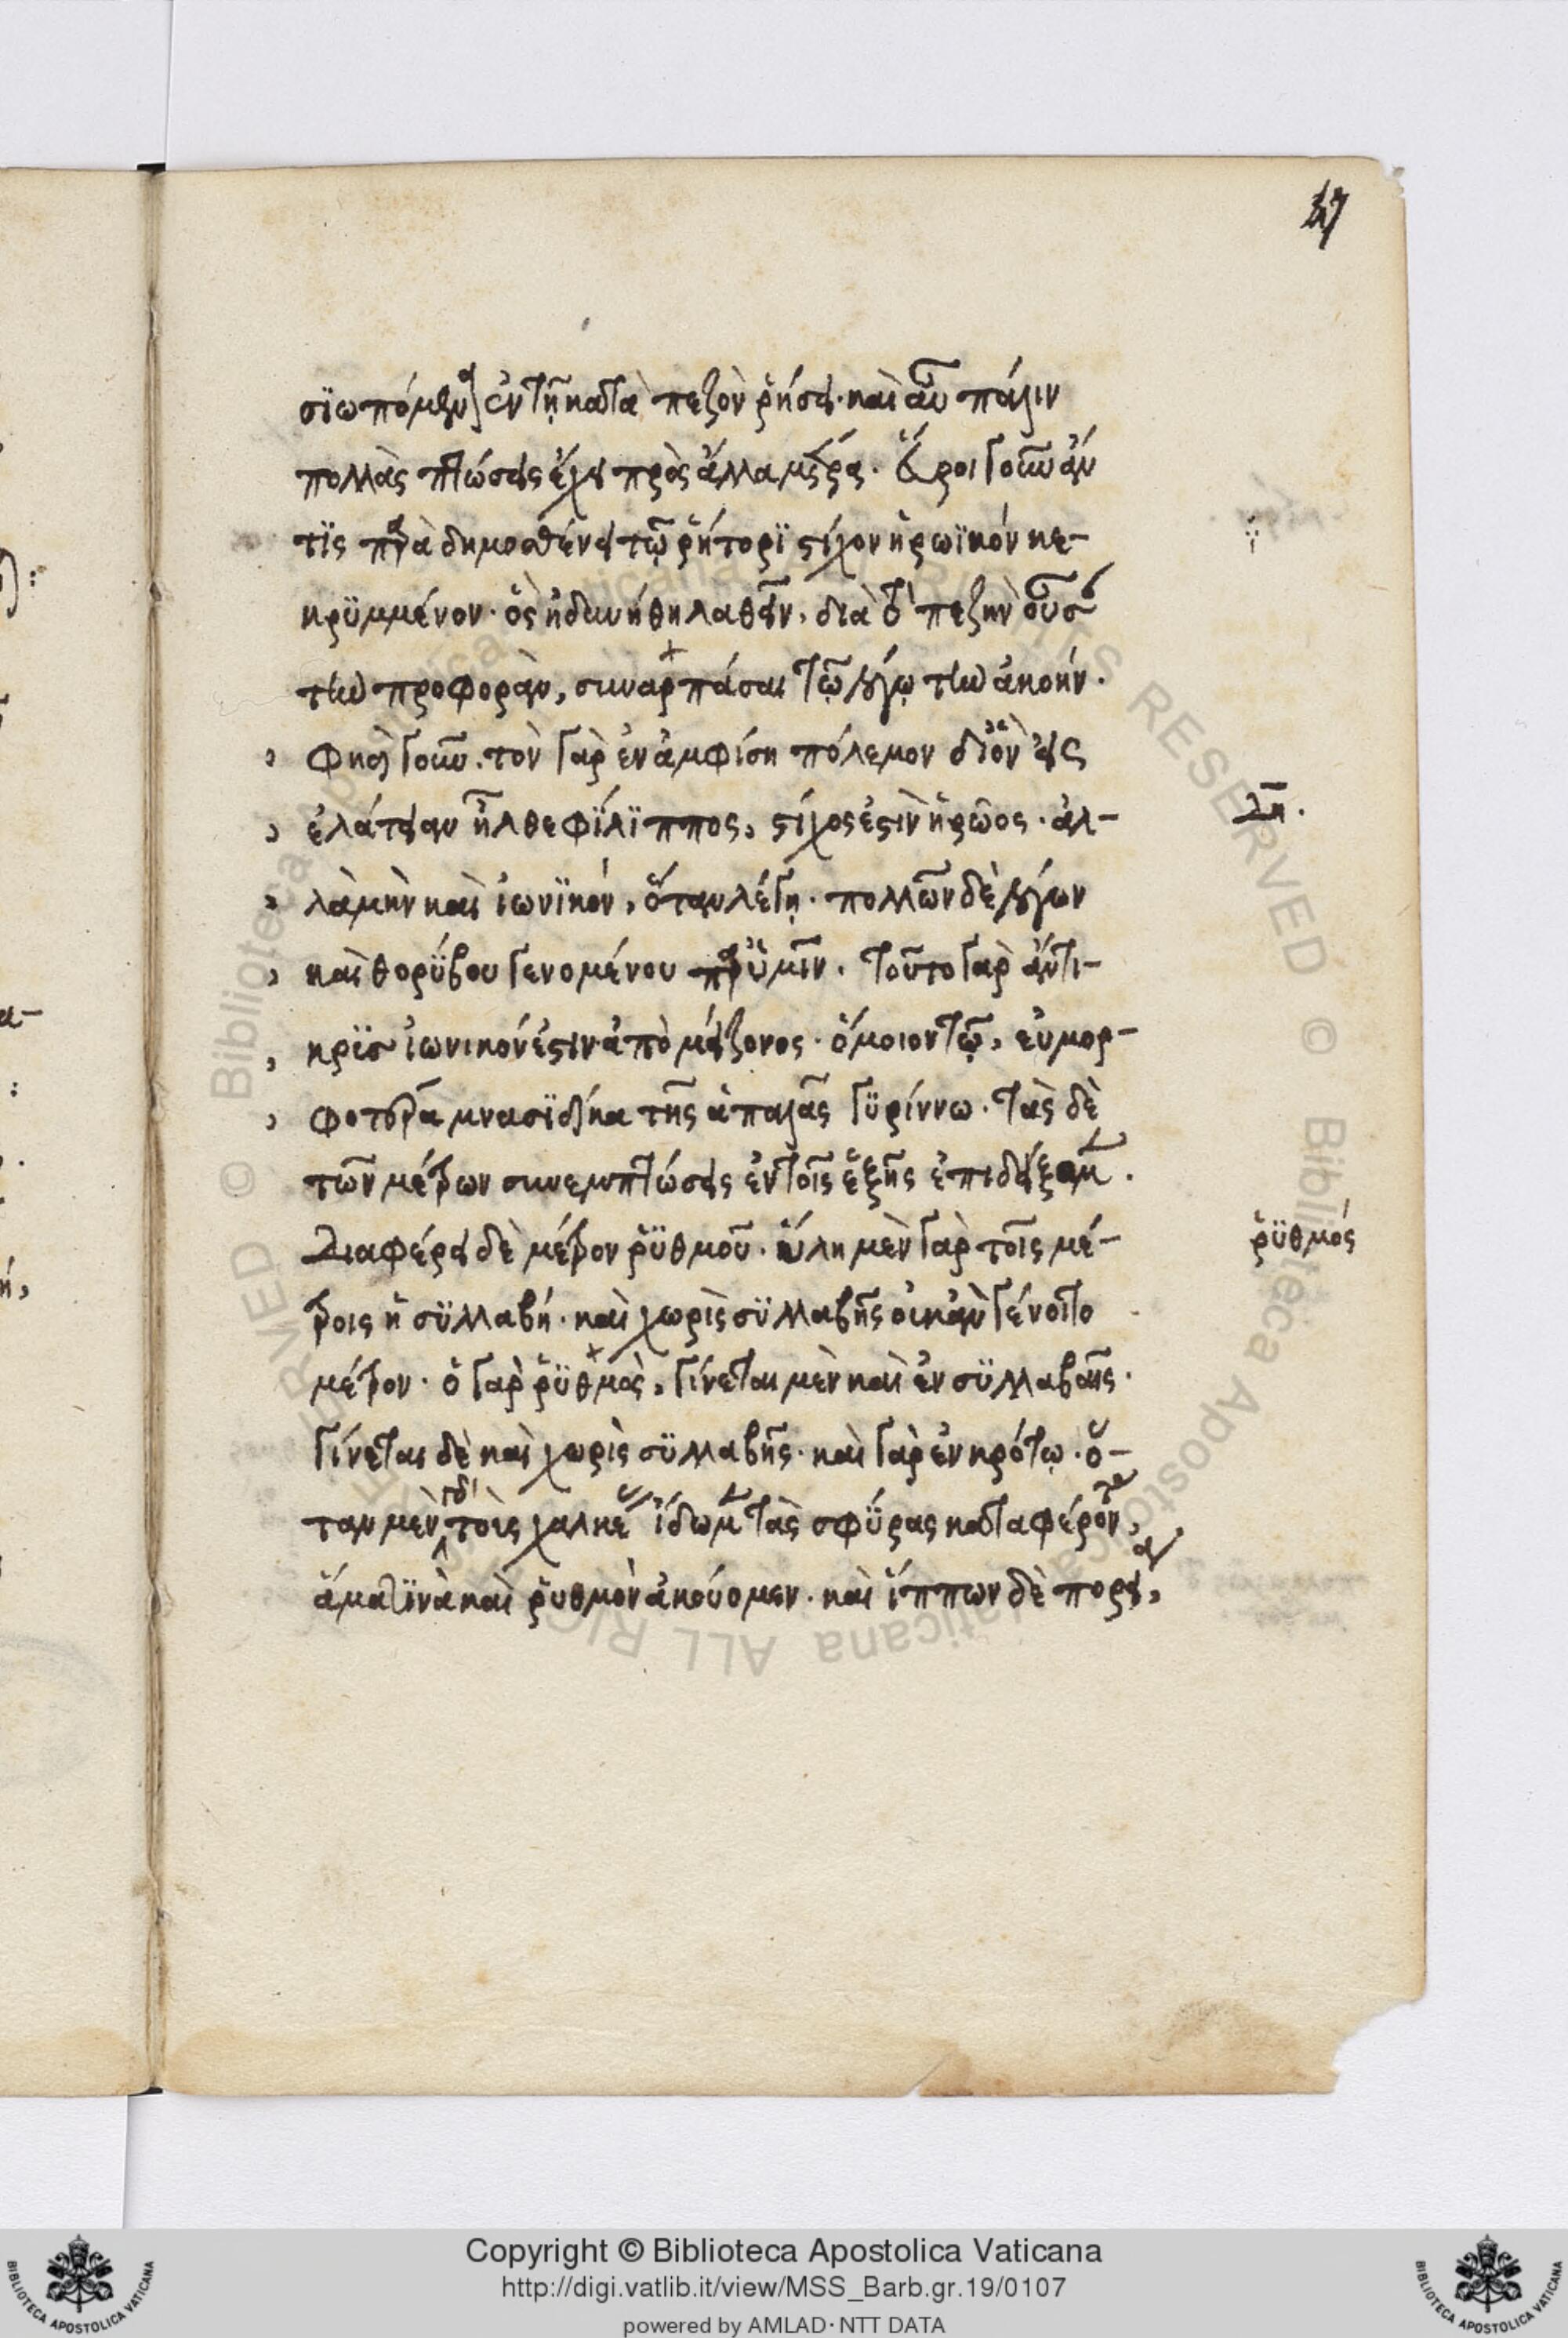 47
σϊωπόμενα ἐν τῆ κατὰ πεζὸν ῥήσει· καὶ αὖ πάλιν
πολλὰς πτώσεις ἔχει πρὸς ἄλληλα μέτρα. εὕροι γοῦν ἄν
τϊς παρὰ δημοσθένει τῷ ῥήτορϊ στίχον ἡρωϊκόν κε-
κρϋμμένον· ὃς ἠδυνήθη λαθεῖν, διὰ τὸ πεζὴν οὖσαν
τὴν προφορὰν, συναρπάσαι τῷ λόγῳ τὴν ἀκοήν.
φησὶ γοῦν. τὸν γὰρ ἐν ἀμφίσῃ πόλεμον δι' ὃν εἰς
ἐλάτειαν ἦλθε φϊλϊππος, στίχος ἐστὶν ἡρῶος. ἀλ-
λὰ μὴν καὶ ἰωνϊκόν, ὅταν λέγῃ. πολλῶν δὲ λόγων
καὶ θορϋβου γενομένου παρ' ὑμῖν. τοῦτο γὰρ ἄντι-
κρϋσ ἰωνικόν ἐστιν ἀπὸ μείζονος. ὅμοιον τῷ, εὐμορ-
φοτέρα μνασϊδίκα τῆς ἁπαλᾶς γϋρίννω. τὰς δὲ
τῶν μέτρων συνεμπτώσεις ἐν τοῖς ἑξῆς ἐπιδείξομεν.
Διαφέρει δὲ μέτρον ῥϋθμοῦ. ὕλη μὲν γὰρ τοῖς μέ-
τροις ἡ σϋλλαβή. καὶ χωρὶς σϋλλαβῆς οὐκ ἂν γένοιτο
μέτρον. ὁ γὰρ ῥϋθμὸς, γίνεται μὲν καὶ ἐν σϋλλαβαῖς.
γίνεται δὲ καὶ χωρὶς σϋλλαβῆς. καὶ γὰρ ἐν κρότῳ. ὅ-
ταν μὲν γὰρ τοὺς χαλκέας ἴδωμεν τὰς σφϋρας καταφέροντας,
ἅμα τϊνὰ καὶ ῥυθμὸν ἀκούομεν. καὶ ἵππων δὲ πορεία,
ση.
ῥϋθμός
Copyright © Biblioteca Apostolica Vaticana
http://digi.vatlib.it/view/MSS_Barb.gr.19/0107
powered by AMLAD·NTT DATA